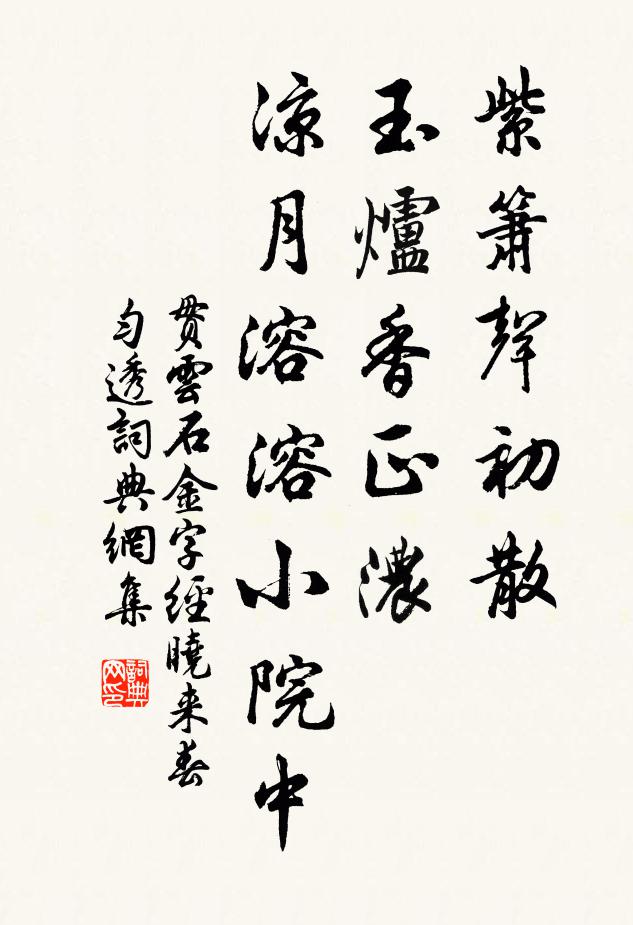 紫簫聲初散
玉爐香正濃
涼月溶溶小院中
貫雲石金字經曉来春
匀透詞典網集
詞典网印